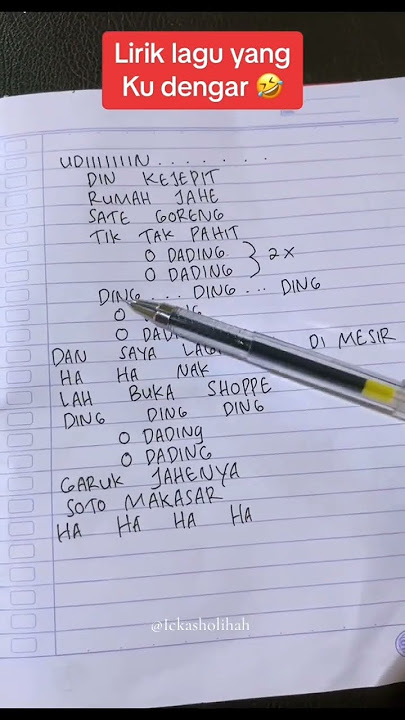 Lirik lagu yang
Ku dengar 🤣
UDIIIIIIIN . . . . . . .
DIN KEJEPIT
RUMAH JAHE
SATE GORENG
TIK TAK PAHIT
O DADING
O DADING } 2X
DING ... DING ... DING
O
O
DAN SAYA DI MESIR
HA HA NAK
LAH BUKA SHOPPE
DING DING DING
O DADING
O DADING
GARUK JAHENYA
SOTO MAKASAR
HA HA HA HA
@fckasholihah